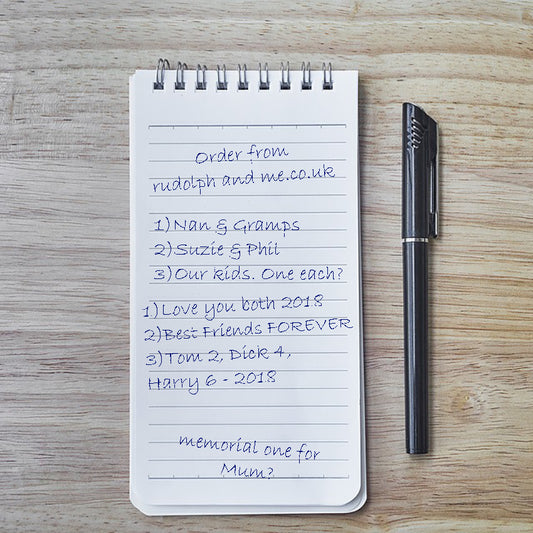 Order from
rudolph and me.co.uk
1) Nan & Gramps
2) Suzie & Phil
3) Our kids. One each?
1) Love you both 2018
2) Best Friends FOREVER
3) Tom 2, Dick 4,
Harry 6 - 2018
memorial one for
Mum?